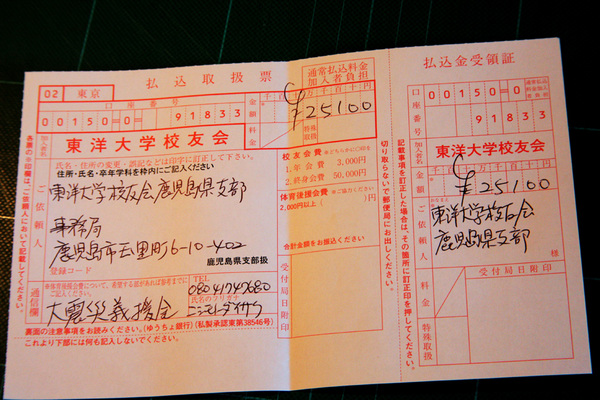 02 東京
払込取扱票
通常払込料金
加入者負担
口座番号
00150=0= 91833
金額
千百十万千百十円
¥25100
料金
特殊取扱
加入者名
東洋大学校友会
氏名・住所の変更・誤記などは印字に訂正して下さい。
住所・氏名・卒年学科を枠内にご記入ください
ご依頼人
東洋大学校友会鹿児島県支部
事務局
鹿児島市玉里町6-10-402
登録コード
鹿児島県支部扱
校友会費
1.年会費 3,000円
2.終身会費 50,000円
体育後援会費
2,000円以上( )円
合計金額をお振込ください
受付局日附印
通信欄
ご記入ください。
TEL
08041747680
氏名のフリガナ
大震災義援金
裏面の注意事項をお読みください。(ゆうちょ銀行)(私製承認東第38546号)
これより下部には何も記入しないでください。
各票の※印欄は、ご依頼人において記載してください。
切り取らないで郵便局にお出しください。
記載事項を訂正した場合は、その箇所に訂正印を押してください。
払込金受領証
口座番号
00150=0
通常払込
料金加入
者負担
91833
加入者名
東洋大学校友会
金額
千百十万千百十円
¥25100
ご依頼人
東洋大学校友会
鹿児島県支部
様
料金
受付局日附印
特殊取扱